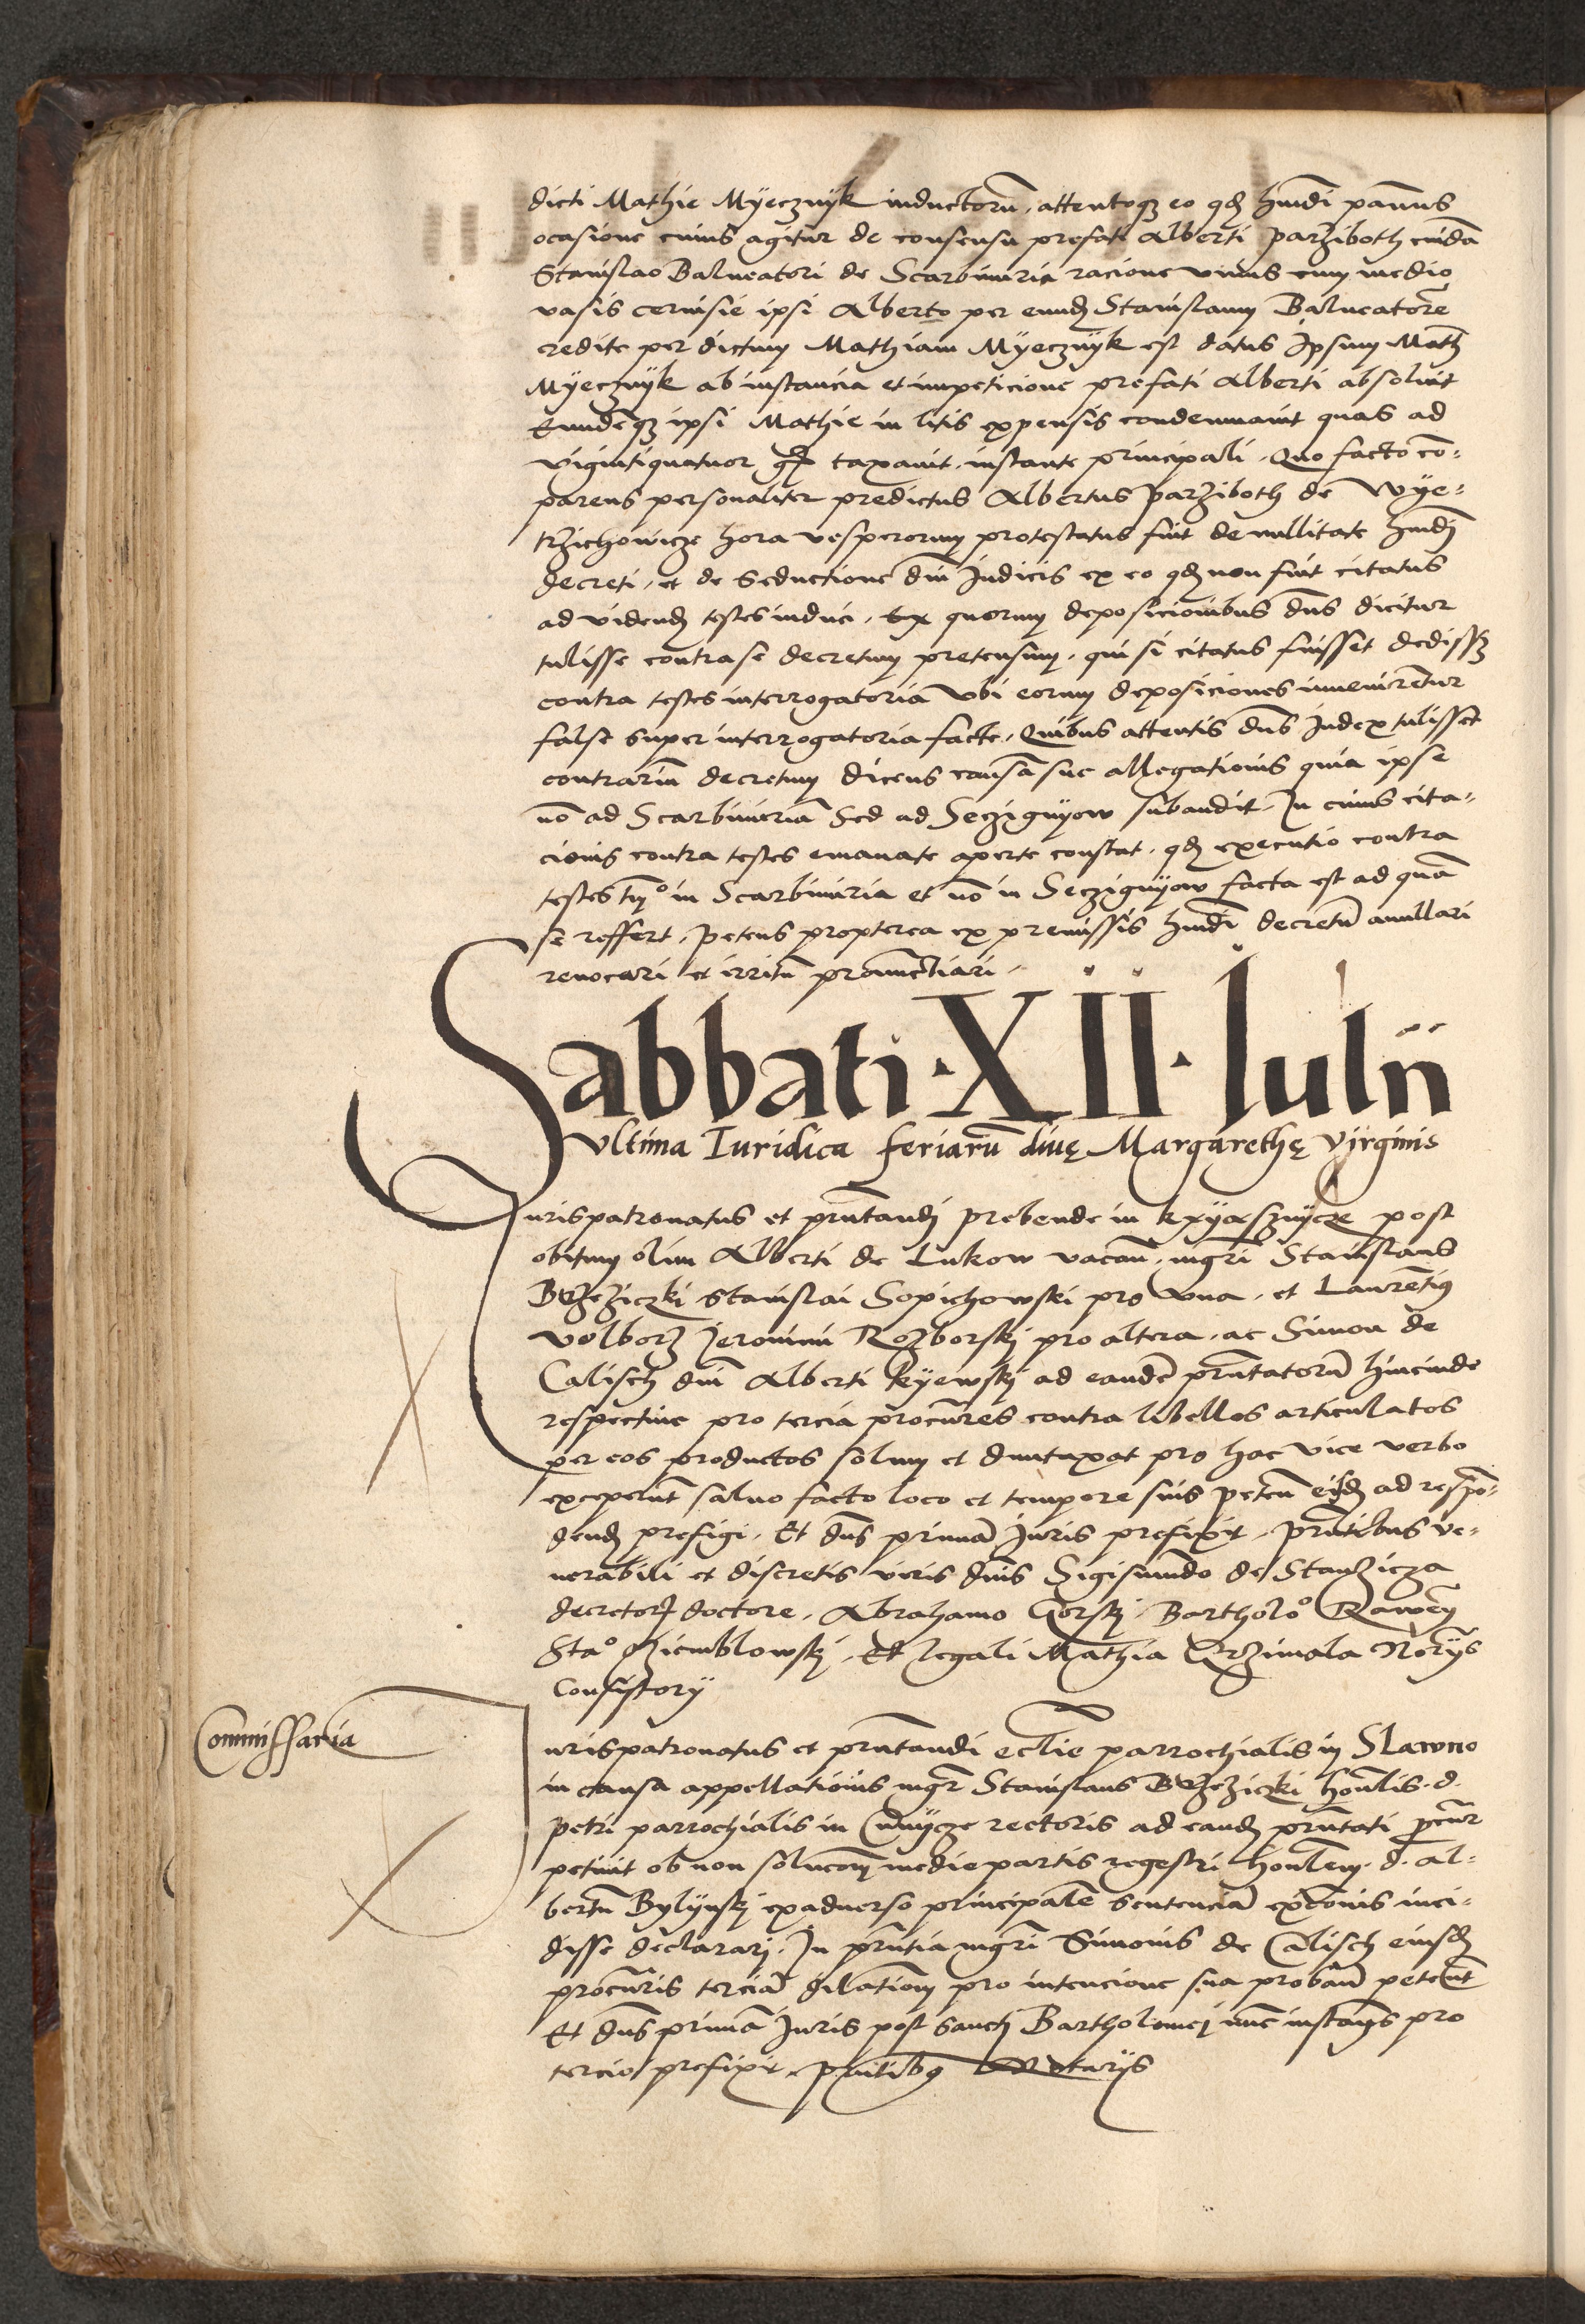 dicti Mathie Myecznyk inductorũ, attentoqȝ eo qđ hmõi pannus
ocasione cuius agitur de consensu prefati Alberti Parziboth cuidã
Stanislao Balneatori de Scarbimiria racione vnius cum medio
vasis ceruisie ipsi Alberto per eundẽ Stanislaum Balneatorẽ
credite per dictum Mathiam Myecznyk est datus Ipsum Math
Myecznyk ab instancia et impeticione prefati Alberti absoluit
Eundẽqȝ ipsi Mathie in litis expensis condemnauit quas ad
vigintiquatuor gr taxauit, instante principali, Quo facto cõ-
parens personaliter predictus Albertus Parziboth de Wye-
trzichowicze hora vesperorum protestatus fuit de nullitate hmõi
decreti, et de seductione dñi Judicis ex eo qđ non fuit citatus
ad videndũ testes induci, Ex quorum deposicionibus dñs dicitur
tulisse contra se decretum pretensum, qui si citatus fuisset dedissȝ
contra testes interrogatoria Vbi eorum deposiciones inuenirentur
false super interrogatoria facte, Quibus attentis dñs Judex tulisset
contrariũ decretum dicens causã sue allegationis quia ipse
nõ ad Scarbimiriã Sed ad Secziguyow subaudit, In cuius cita-
cionis contra testes emanate aperte constat, qđ executio contra
testes tm̃o in Scarbimiria et nõ in Secziguyow facta est ad quã
se reffert, Petens propterea ex premissis hmõi decretũ anullari
reuocari et irritũ pronunctiari
Sabbati · XII · Iulii
vltima Iuridica feriarũ diuę Margarethę virginis
Iurispatronatus et pñtandi prebende in kxyasznycze post
obitum olim Alberti de Lukow vacañ, mgri Stanislaus
Brzeziczki Stanislai Sopichowski pro vna, et Laurentiꝰ
Volborz Jeronimi Rozborskj pro altera, ac Simon de
Calisch dñi Alberti kyewskj ad eandẽ pñtatorũ hincinde
respectiue pro tercia procũres contra libellos articulatos
per eos productos solum et duntaxat pro hac vice verbo
exceperũt saluo facto loco et tempore suis petẽn eisdẽ ad respõ-
dendũ prefigi, Et dñs primã Juris prefixit, Pñtibus ve-
nerabili et discretis viris dñis Sigismundo de Stanzicza
decretorũ doctore, Abrahamo Gorskj, Bartholo Raweñ
Stao Dziemblowskj, Et legali Mathia Grzimala Notarijs
Consistorij
Commissaria
Iurispatronatus et pñtandi ecclie parrochialis in Slawno
in causa appellationis mgr Stanislaus Brzeziczki honlis. d.
Petri parrochialis in Cmnycze rectoris ad eandẽ pñtati procũr
petiuit ob non solucõm medie partis regestri honlem. d. Al-
bertũ Bylynskj exaduerso principalẽ sentenciã excõnis inci-
disse declararj, In pñtia mgri Simonis de Calisch eiusdẽ
procũris terciã dilationẽ pro intencione sua probãn petẽnt
Et dñs primã Juris post sancti Bartholomej nũc instans pro
tercio prefixit, Pñtibꝰ Notarijs